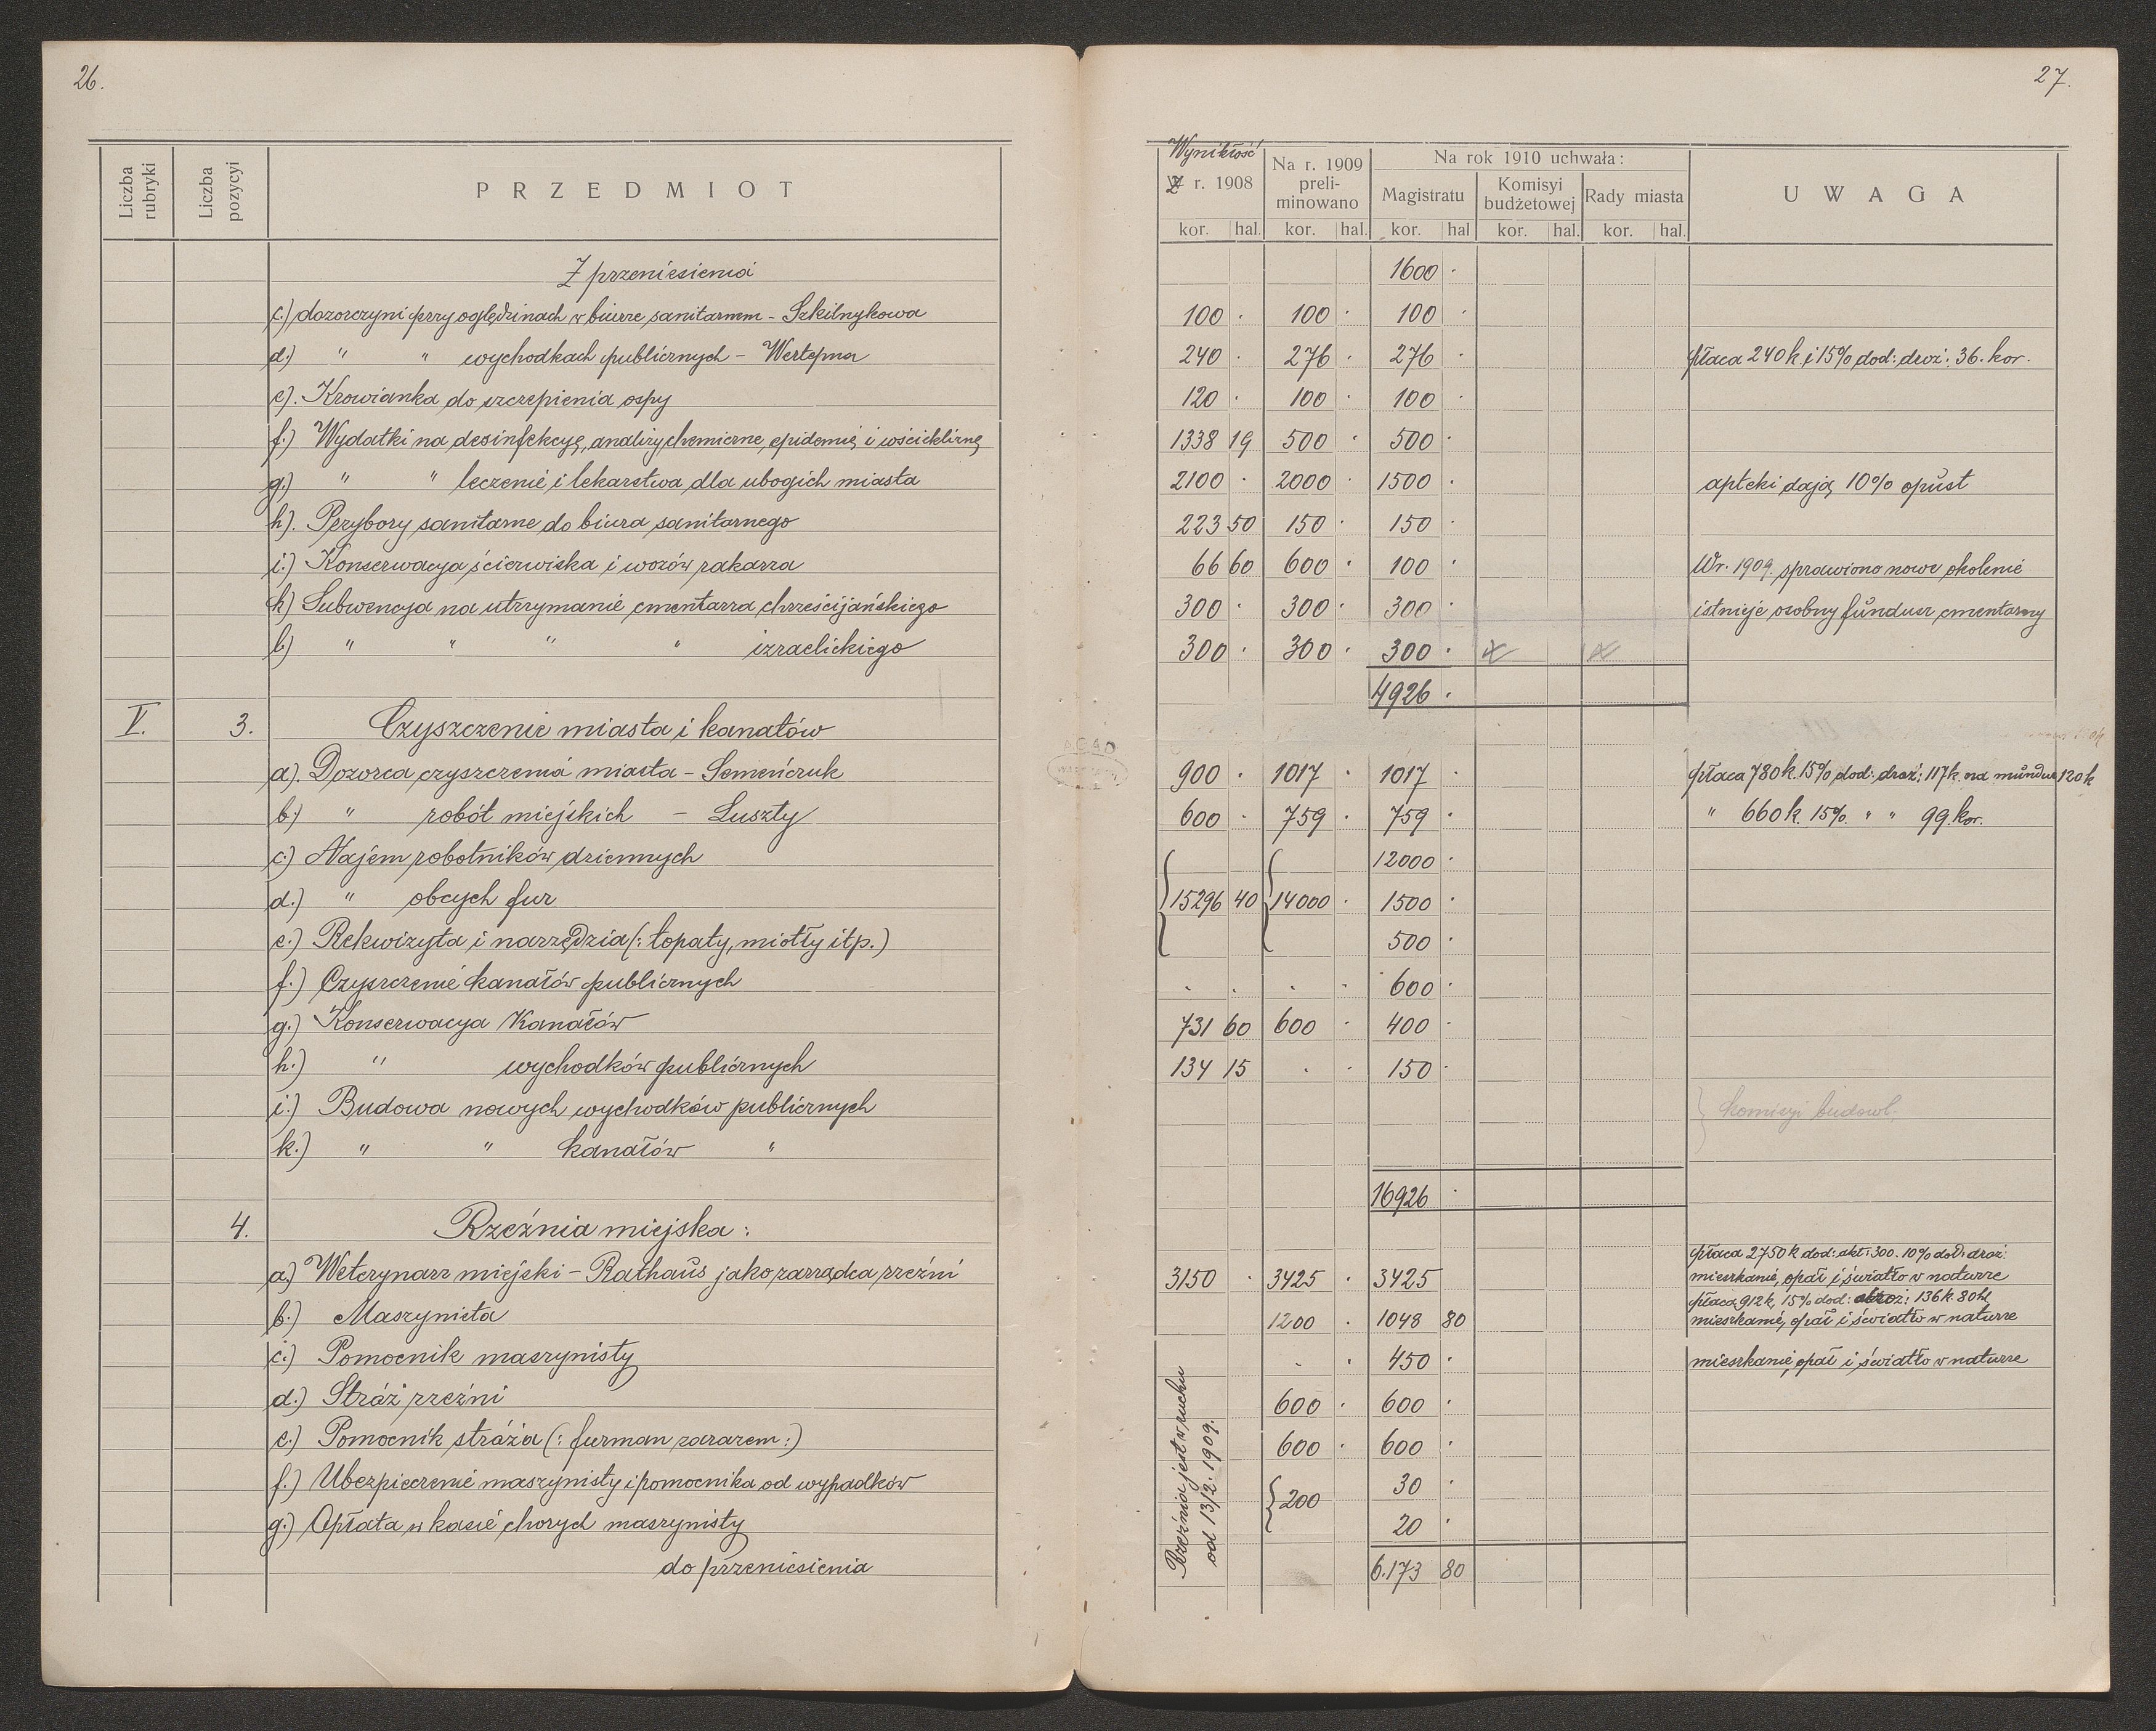 26.
27.
Liczba rubryki
Liczba pozycyi
PRZEDMIOT
Wynikłość
Z r. 1908
Na r. 1909 preliminowano
Na rok 1910 uchwała:
Magistratu
Komisyi budżetowej
Rady miasta
UWAGA
kor. hal. kor. hal. kor. hal kor. hal. kor. hal.
Z przeniesienia 1600 ·
c.) dozorczyni przy oględzinach w biurze sanitarnem - Szkilnykowa 100 · 100 · 100 ·
d.) " " wychodkach publicznych - Wertepna 240 · 276 · 276 · płaca 240 k i 15% dod: droż: 36. kor.
e). Krowianka do szczepienia ospy 120 · 100 · 100 ·
f.) Wydatki na desinfekcyę, analizy chemiczne, epidemię i wściekliznę 1338 19 500 · 500 ·
g.) " " leczenie i lekarstwa dla ubogich miasta 2100 · 2000 · 1500 · apteki dają 10% opust
h). Przybory sanitarne do biura sanitarnego 223 50 150 · 150 ·
i.) Konserwacya ścierwiska i wozów rakarza 66 60 600 · 100 · W r. 1909. sprawiono nowe okolenie
k) Subwencya na utrzymanie cmentarza chrześcijańskiego 300 · 300 · 300 · istnieje osobny fundusz cmentarny
l) " " " " izraelickiego 300 · 300 · 300 ·
4926 ·
V. 3. Czyszczenie miasta i kanałów
a). Dozorca czyszczenia miasta - Semeńczuk 900 · 1017 · 1017 · płaca 780 k. 15% dod: droż: 117 k. na mundur 120 k
b.) " robót miejskich - Luszty 600 · 759 · 759 · " 660 k. 15% " " 99. kor.
c.) Najem robotników dziennych 12000 ·
d.) " obcych fur 15296 40 14000 · 1500 ·
e.) Rekwizyta i narzędzia (: łopaty, miotły itp.) 500 ·
f.) Czyszczenie kanałów publicznych · · · · 600 ·
g.) Konserwacya Kanałów 731 60 600 · 400 ·
h.) " wychodków publicznych 134 15 · · 150 ·
i.) Budowa nowych wychodków publicznych komisyi budowl.
k.) " " kanałów "
16926 ·
4. Rzeźnia miejska:
płaca 2750 k dod: akt: 300. 10% dod: droż:
a.) Weterynarz miejski - Rathaus jako zarządca rzeźni 3150 · 3425 · 3425 mieszkanie, opał i światło w naturze
płaca 912 k, 15% dod: droż: 136 k. 80 hl
b.) Maszynista 1200 · 1048 80 mieszkanie, opał i światło w naturze
c.) Pomocnik maszynisty · · 450 · mieszkanie, opał i światło w naturze
d.) Stróż rzeźni 600 · 600 ·
e.) Pomocnik stróża (: furman zarazem :) 600 · 600 ·
f.) Ubezpieczenie maszynisty i pomocnika od wypadków 200 30 ·
g.) Opłata w kasie chorych maszynisty 20 ·
do przeniesienia 6.173 80
Rzeźnia jest w ruchu
od 13/2. 1909.